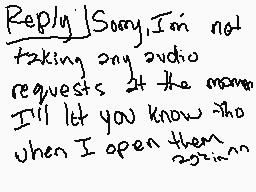 Reply Sorry, I'm not
taking any audio
requests at the momen
I'll let you know tho
when I open them
againnn